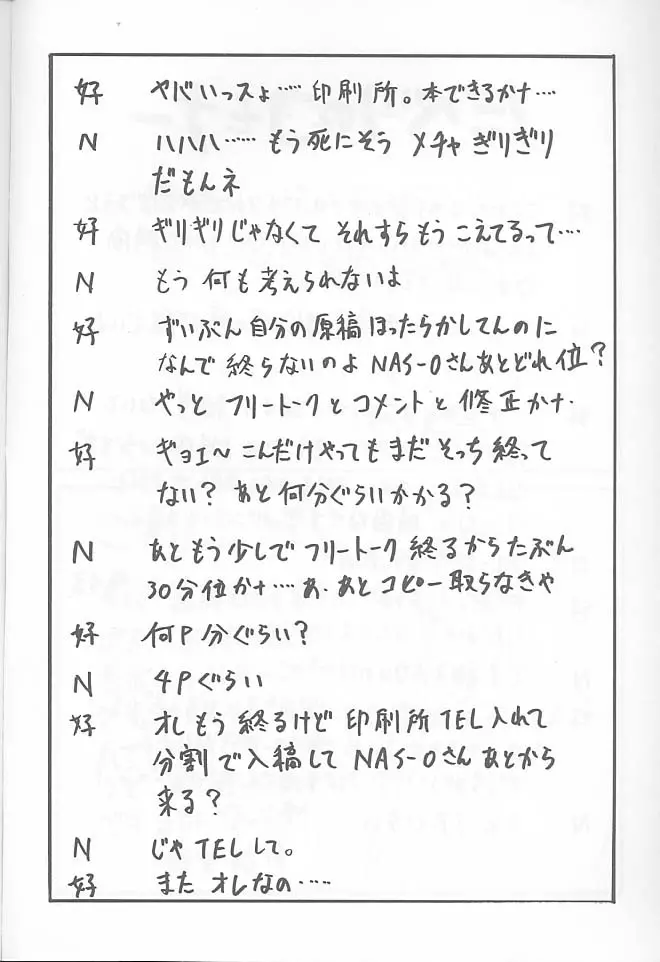 好 ヤバいっスょ……印刷所。本できるかナ…
N ハハハ……もう死にそう メチャぎりぎり
だもんネ
好 ギリギリじゃなくて それすらもうこえてるって…
N もう何も考えられないよ
好 ずいぶん自分の原稿ほったらかしてんのに
なんで終らないのよ NAS-Oさんあとどれ位?
N やっと フリートークとコメントと修正かナ・
好 ギョエ～こんだけやってもまだそっち終って
ない?あと何分ぐらいかかる?
N あともう少しでフリートーク終るからたぶん
30分位かナ…あ、あとコピー取らなきゃ
好 何P分ぐらい?
N 4Pぐらい
好 オレもう終るけど印刷所TEL入れて
分割で入稿して NAS-Oさんあとから
来る?
N じゃTELして。
好 またオレなの……